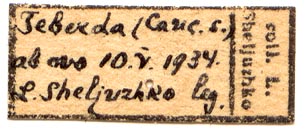 Teberda (Cauc. s.)
ab ovo 10.V. 1934.
L. Sheljuzhko leg.
coll. L.
Sheljuzhko